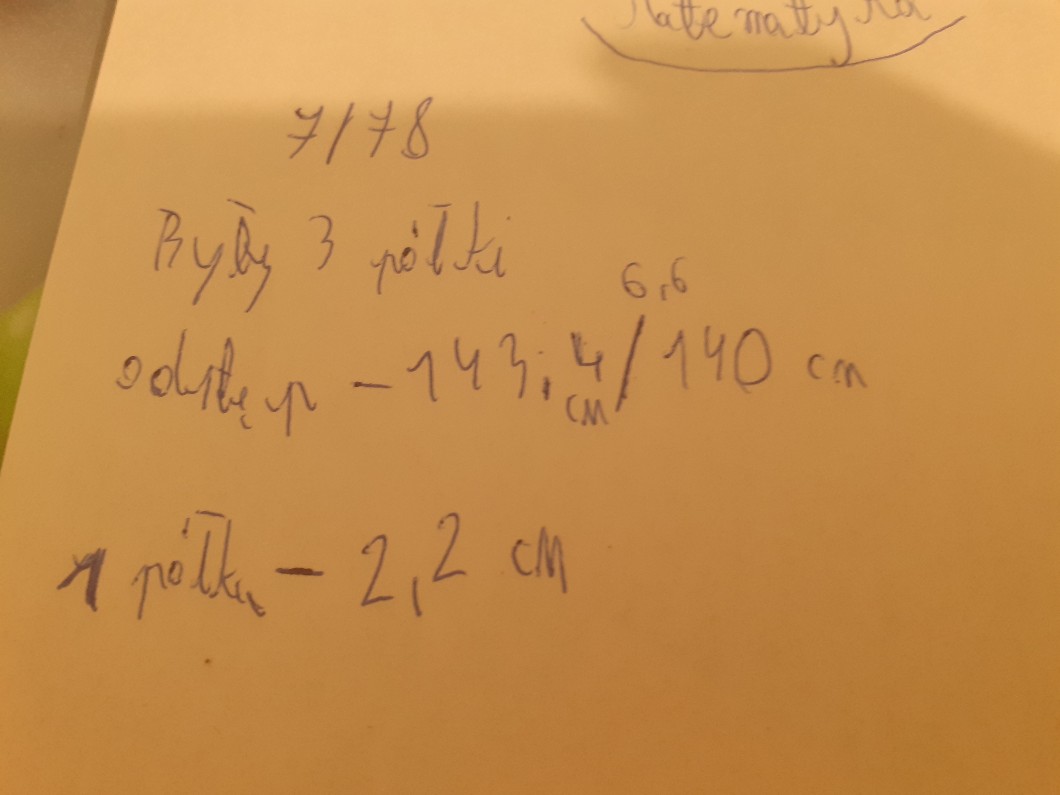 Matematyka
7/78
Były 3 półki
6,6
odstęp – 143,4/140 cm
cm
1 półka – 2,2 cm